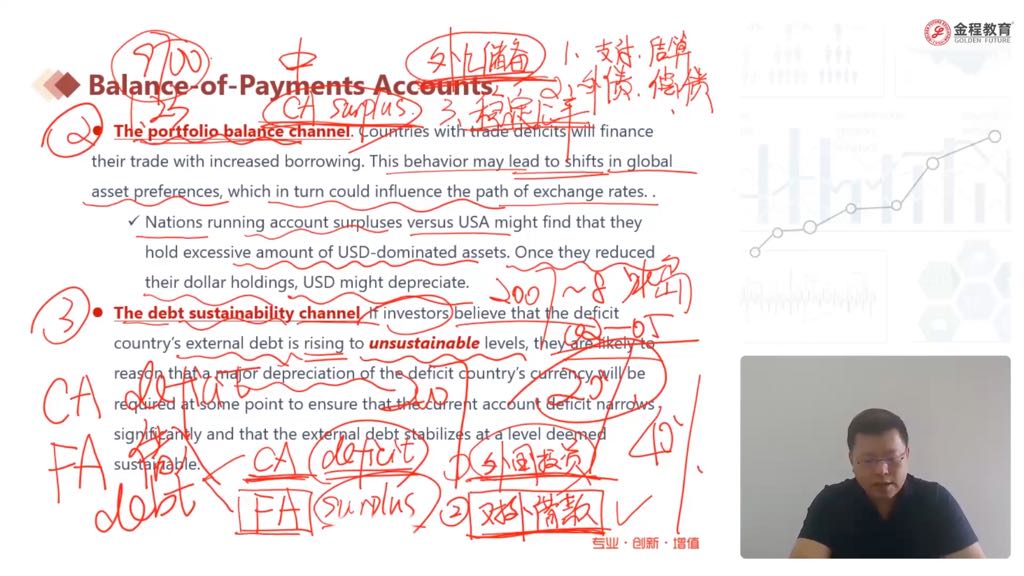 9700 中 外汇储备 1. 支付. 清算
金程教育
GOLDEN FUTURE
Balance-of-Payments Accounts
2. 外债. 偿债
25 CA surplus. 3. 稳定汇率
② The portfolio balance channel. Countries with trade deficits will finance
their trade with increased borrowing. This behavior may lead to shifts in global
asset preferences, which in turn could influence the path of exchange rates. .
✓ Nations running account surpluses versus USA might find that they
hold excessive amount of USD-dominated assets. Once they reduced
their dollar holdings, USD might depreciate.
2007~8 冰岛
③ The debt sustainability channel. If investors believe that the deficit
country's external debt is rising to unsustainable levels, they are likely to
reason that a major depreciation of the deficit country's currency will be
required at some point to ensure that the current account deficit narrows
significantly and that the external debt stabilizes at a level deemed
sustainable.
CA deficit 20
40%
FA
CA (deficit) ① 外国投资
debt FA (surplus) ② 对外借款 ✓
专业·创新·增值